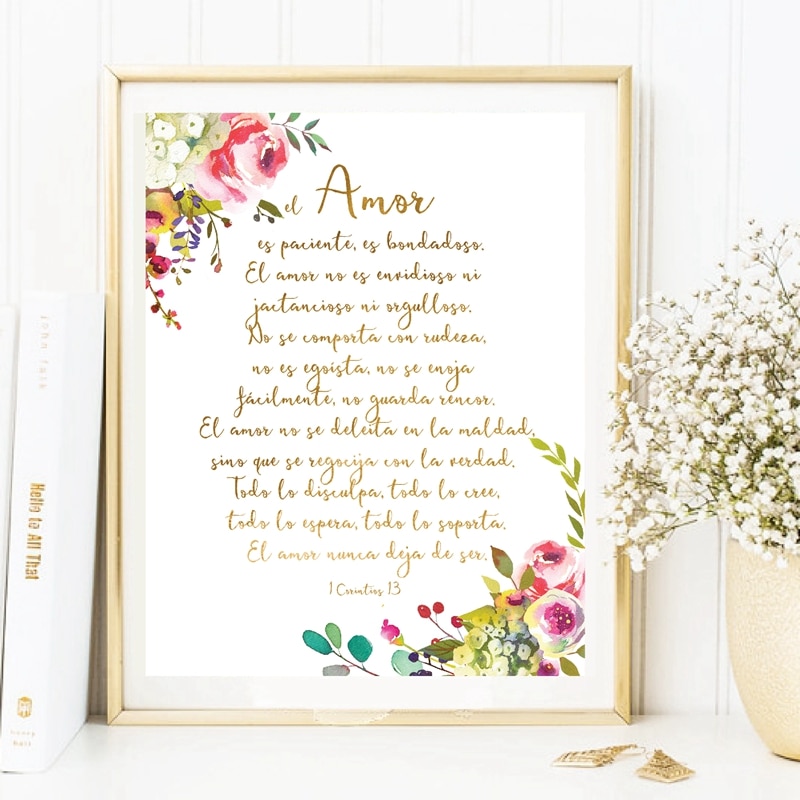 el Amor
es paciente, es bondadoso.
El amor no es envidioso ni
jactancioso ni orgulloso.
No se comporta con rudeza,
no es egoista, no se enoja
fácilmente, no guarda rencor.
El amor no se deleita en la maldad,
sino que se regocija con la verdad.
Todo lo disculpa, todo lo cree,
todo lo espera, todo lo soporta.
El amor nunca deja de ser.
1 Corintios 13
john falk
Hello to All That
henry
holt